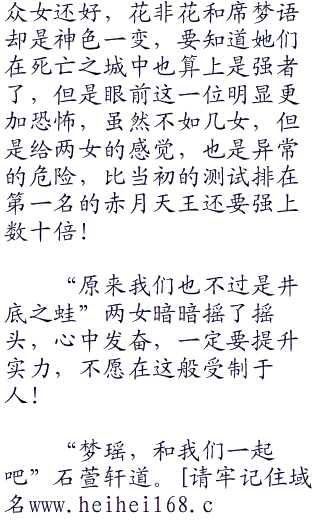 众女还好，花非花和席梦语
却是神色一变，要知道她们
在死亡之城中也算上是强者
了，但是眼前这一位明显更
加恐怖，虽然不如几女，但
是给两女的感觉，也是异常
的危险，比当初的测试排在
第一名的赤月天王还要强上
数十倍！
“原来我们也不过是井
底之蛙”两女暗暗摇了摇
头，心中发奋，一定要提升
实力，不愿在这般受制于
人！
“梦瑶，和我们一起
吧”石萱轩道。[请牢记住域
名www.heihei168.c